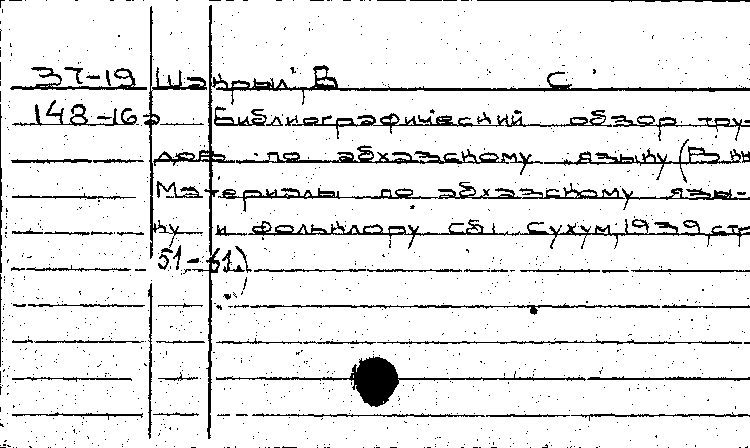 37-19 Шакрыл, В С
148-16а Библиографический обзор тру-
дов по абхазскому языку (В кн
Материалы по абхазскому язы-
ку и фольклору сб1 Сухум, 1939, стр
51-61.)